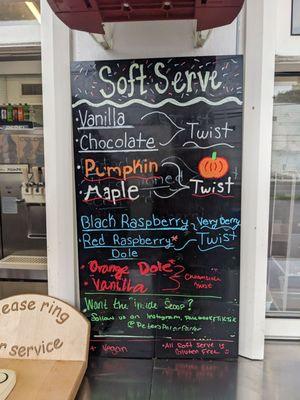 Soft Serve
Vanilla
Chocolate
Twist
Pumpkin
Maple
Twist
Black Raspberry
Red Raspberry*
Dole
Very Berry
Twist
Orange Dole*
Vanilla
Want the "inside Scoop?"
Follow us on Instagram, Facebook & TikTok
* Vegan
*All Soft Serve is
Gluten Free
ease ring
or service